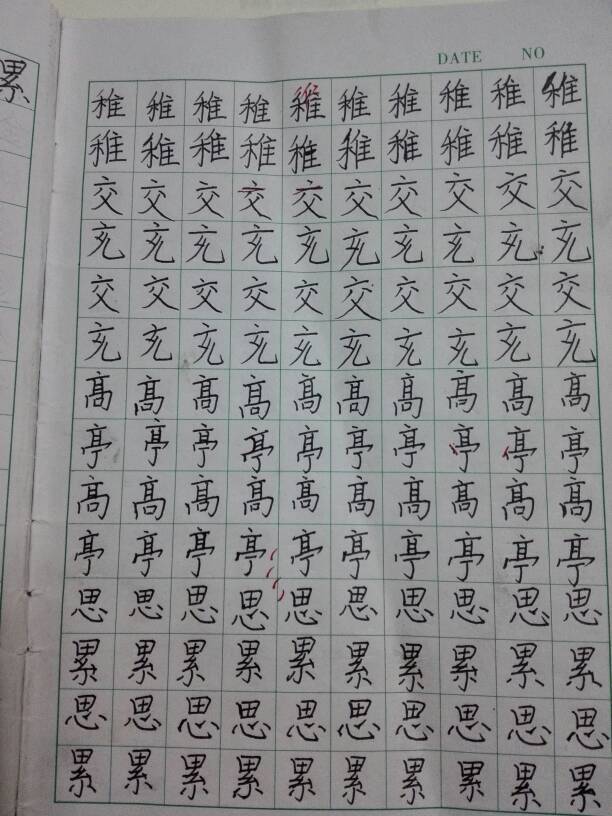 DATE NO
累
稚 稚 稚 稚 稚 稚 稚 稚 稚 稚
稚 稚 稚 稚 稚 稚 稚 稚 稚 稚
交 交 交 交 交 交 交 交 交 交
充 充 充 充 充 充 充 充 充 充
交 交 交 交 交 交 交 交 交 交
充 充 充 充 充 充 充 充 充 充
高 高 高 高 高 高 高 高 高 高
亭 亭 亭 亭 亭 亭 亭 亭 亭 亭
高 高 高 高 高 高 高 高 高 高
亭 亭 亭 亭 亭 亭 亭 亭 亭 亭
思 思 思 思 思 思 思 思 思 思
累 累 累 累 累 累 累 累 累 累
思 思 思 思 思 思 思 思 思 思
累 累 累 累 累 累 累 累 累 累